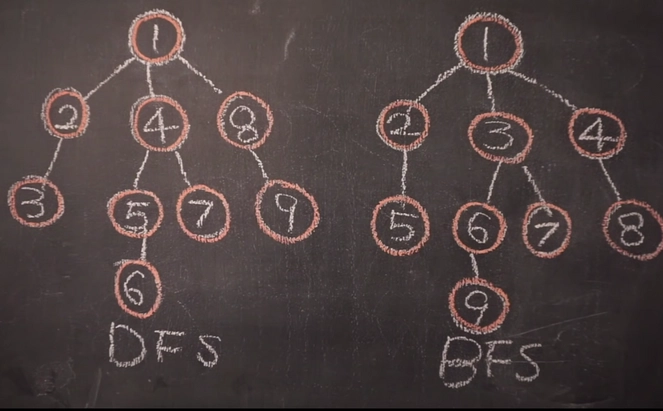 1
2 4 8
3 5 7 9
6
DFS
1
2 3 4
5 6 7 8
9
BFS